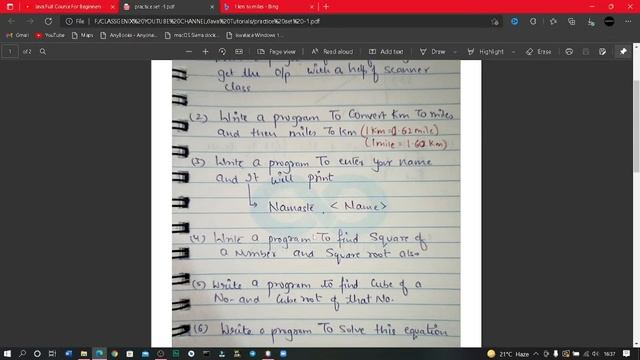 Java Full Course For Beginners
practice set -1.pdf
1 km to miles - Bing
File
F:/CLASSGENIX%20YOUTUBE%20CHANNEL/Java%20Tutorials/practice%20set%20-1.pdf
Gmail
YouTube
Maps
AnyBook - Anyone...
macOS Sierra dock...
livelace Window 1...
1 of 2
Page view
Read aloud
Add text
Draw
Highlight
Erase
get the o/p with a help of scanner
class
(2) Write a program To Convert Km To miles
and then miles To km (1 Km = 0.62 mile)
(1 mile = 1.60 Km)
(3) Write a program To enter your name
and It will print
Namaste, <Name>
(4) Write a program To find Square of
a Number and Square root also
(5) Write a program to find Cube of a
No. and Cube root of that No.
(6) Write a program To Solve this equation
21°C Haze
ENG
16:37